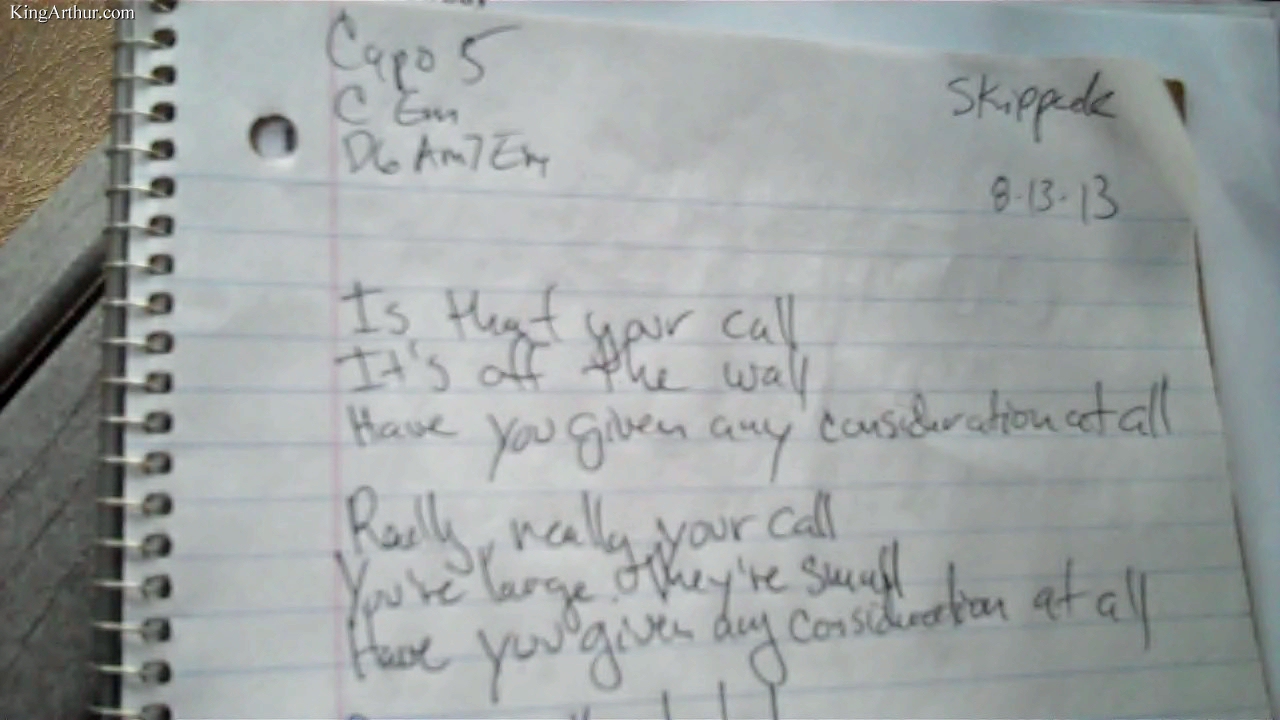 KingArthur.com
Capo 5
C Em
D6 Am7 Em
Skippack
8-13-13
Is that your call
It's off the wall
Have you given any consideration at all
Really, really your call
You're large & they're small
Have you given any consideration at all